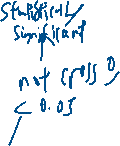 Statistically
significant
not cross 0
< 0.05